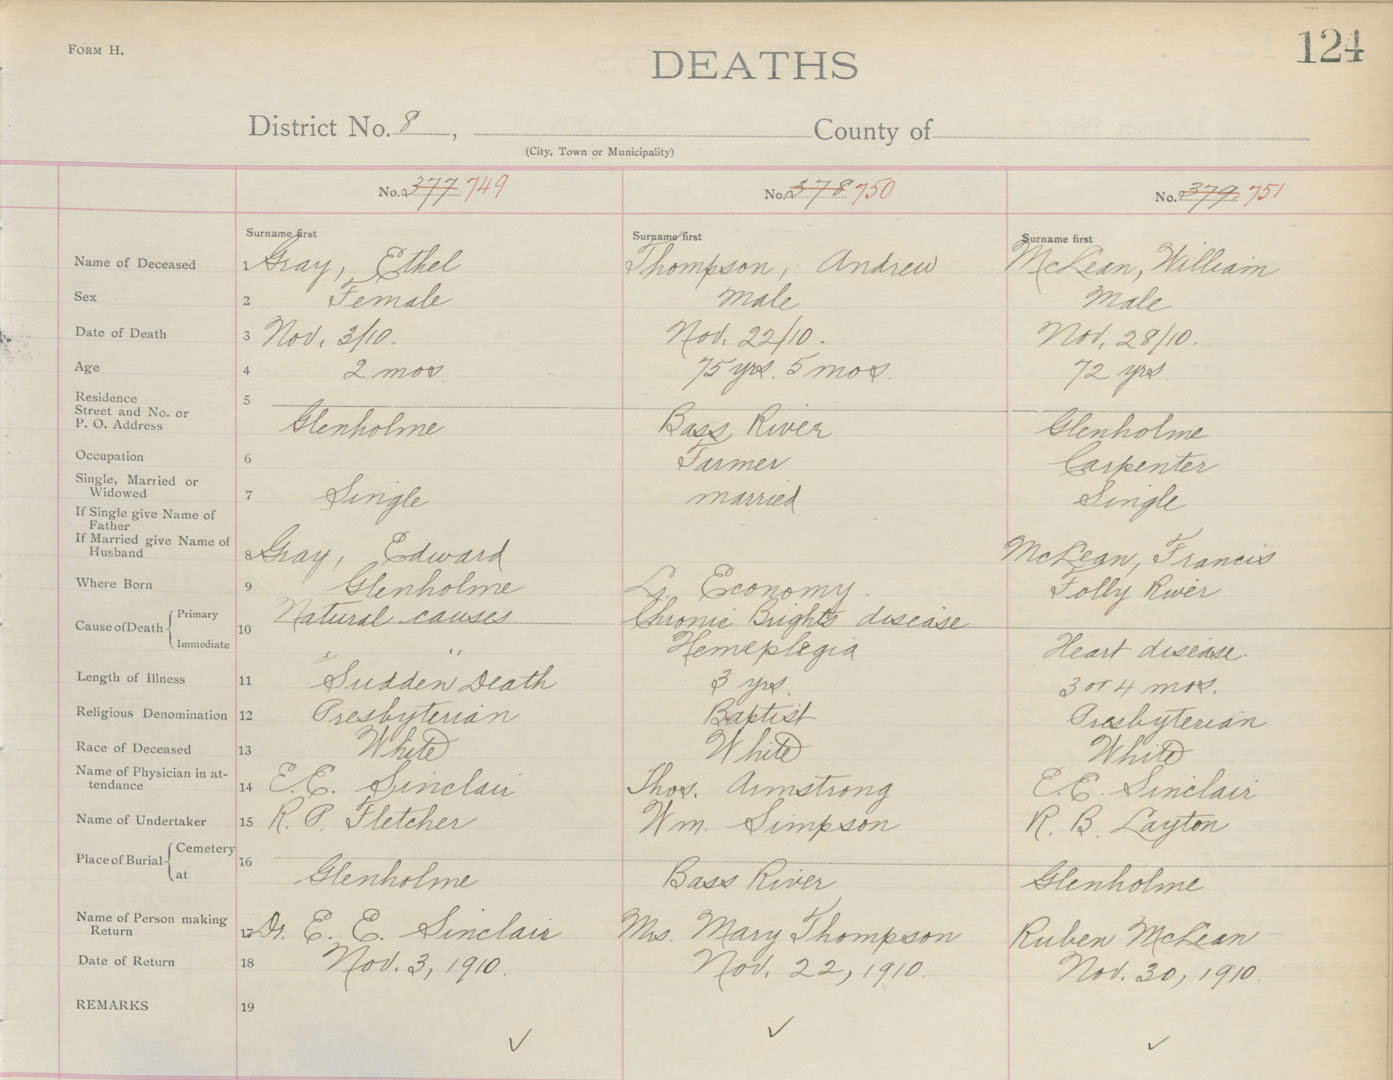 FORM H.
124
DEATHS
District No. 8, County of
(City, Town or Municipality)
No. 377 749 No. 378 750 No. 379 751
Surname first Surname first Surname first
Name of Deceased 1 Gray, Ethel Thompson, Andrew McLean, William
Sex 2 Female Male Male
Date of Death 3 Nov. 3/10. Nov. 22/10. Nov. 28/10.
Age 4 2 mos. 75 yrs. 5 mos. 72 yrs.
Residence 5
Street and No. or
P. O. Address Glenholme Bass River Glenholme
Occupation 6 Farmer Carpenter
Single, Married or
Widowed 7 Single married Single
If Single give Name of
Father
If Married give Name of
Husband 8 Gray, Edward McLean, Francis
Where Born 9 Glenholme Lr. Economy. Folly River
Cause of Death Primary 10 Natural causes Chronic Brights disease
Immediate " " Hemeplegia Heart disease.
Length of Illness 11 Sudden Death 3 yrs. 3 or 4 mos.
Religious Denomination 12 Presbyterian Baptist Presbyterian
Race of Deceased 13 White White White
Name of Physician in at-
tendance 14 E. E. Sinclair Thos. Armstrong E. E. Sinclair
Name of Undertaker 15 R. P. Fletcher Wm. Simpson R. B. Layton
Place of Burial Cemetery 16
at Glenholme Bass River Glenholme
Name of Person making
Return 17 Dr. E. E. Sinclair Mrs. Mary Thompson Ruben McLean
Date of Return 18 Nov. 3, 1910. Nov. 22, 1910. Nov. 30, 1910.
REMARKS 19